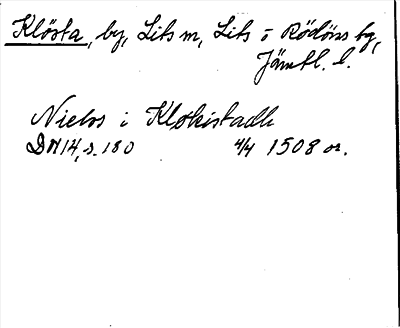 Klösta, by, Lits m, Lits o Rödöns tg,
Jämtl. l.
Niels i Kløkistadh
DN 14, s. 180 4/4 1508 or.